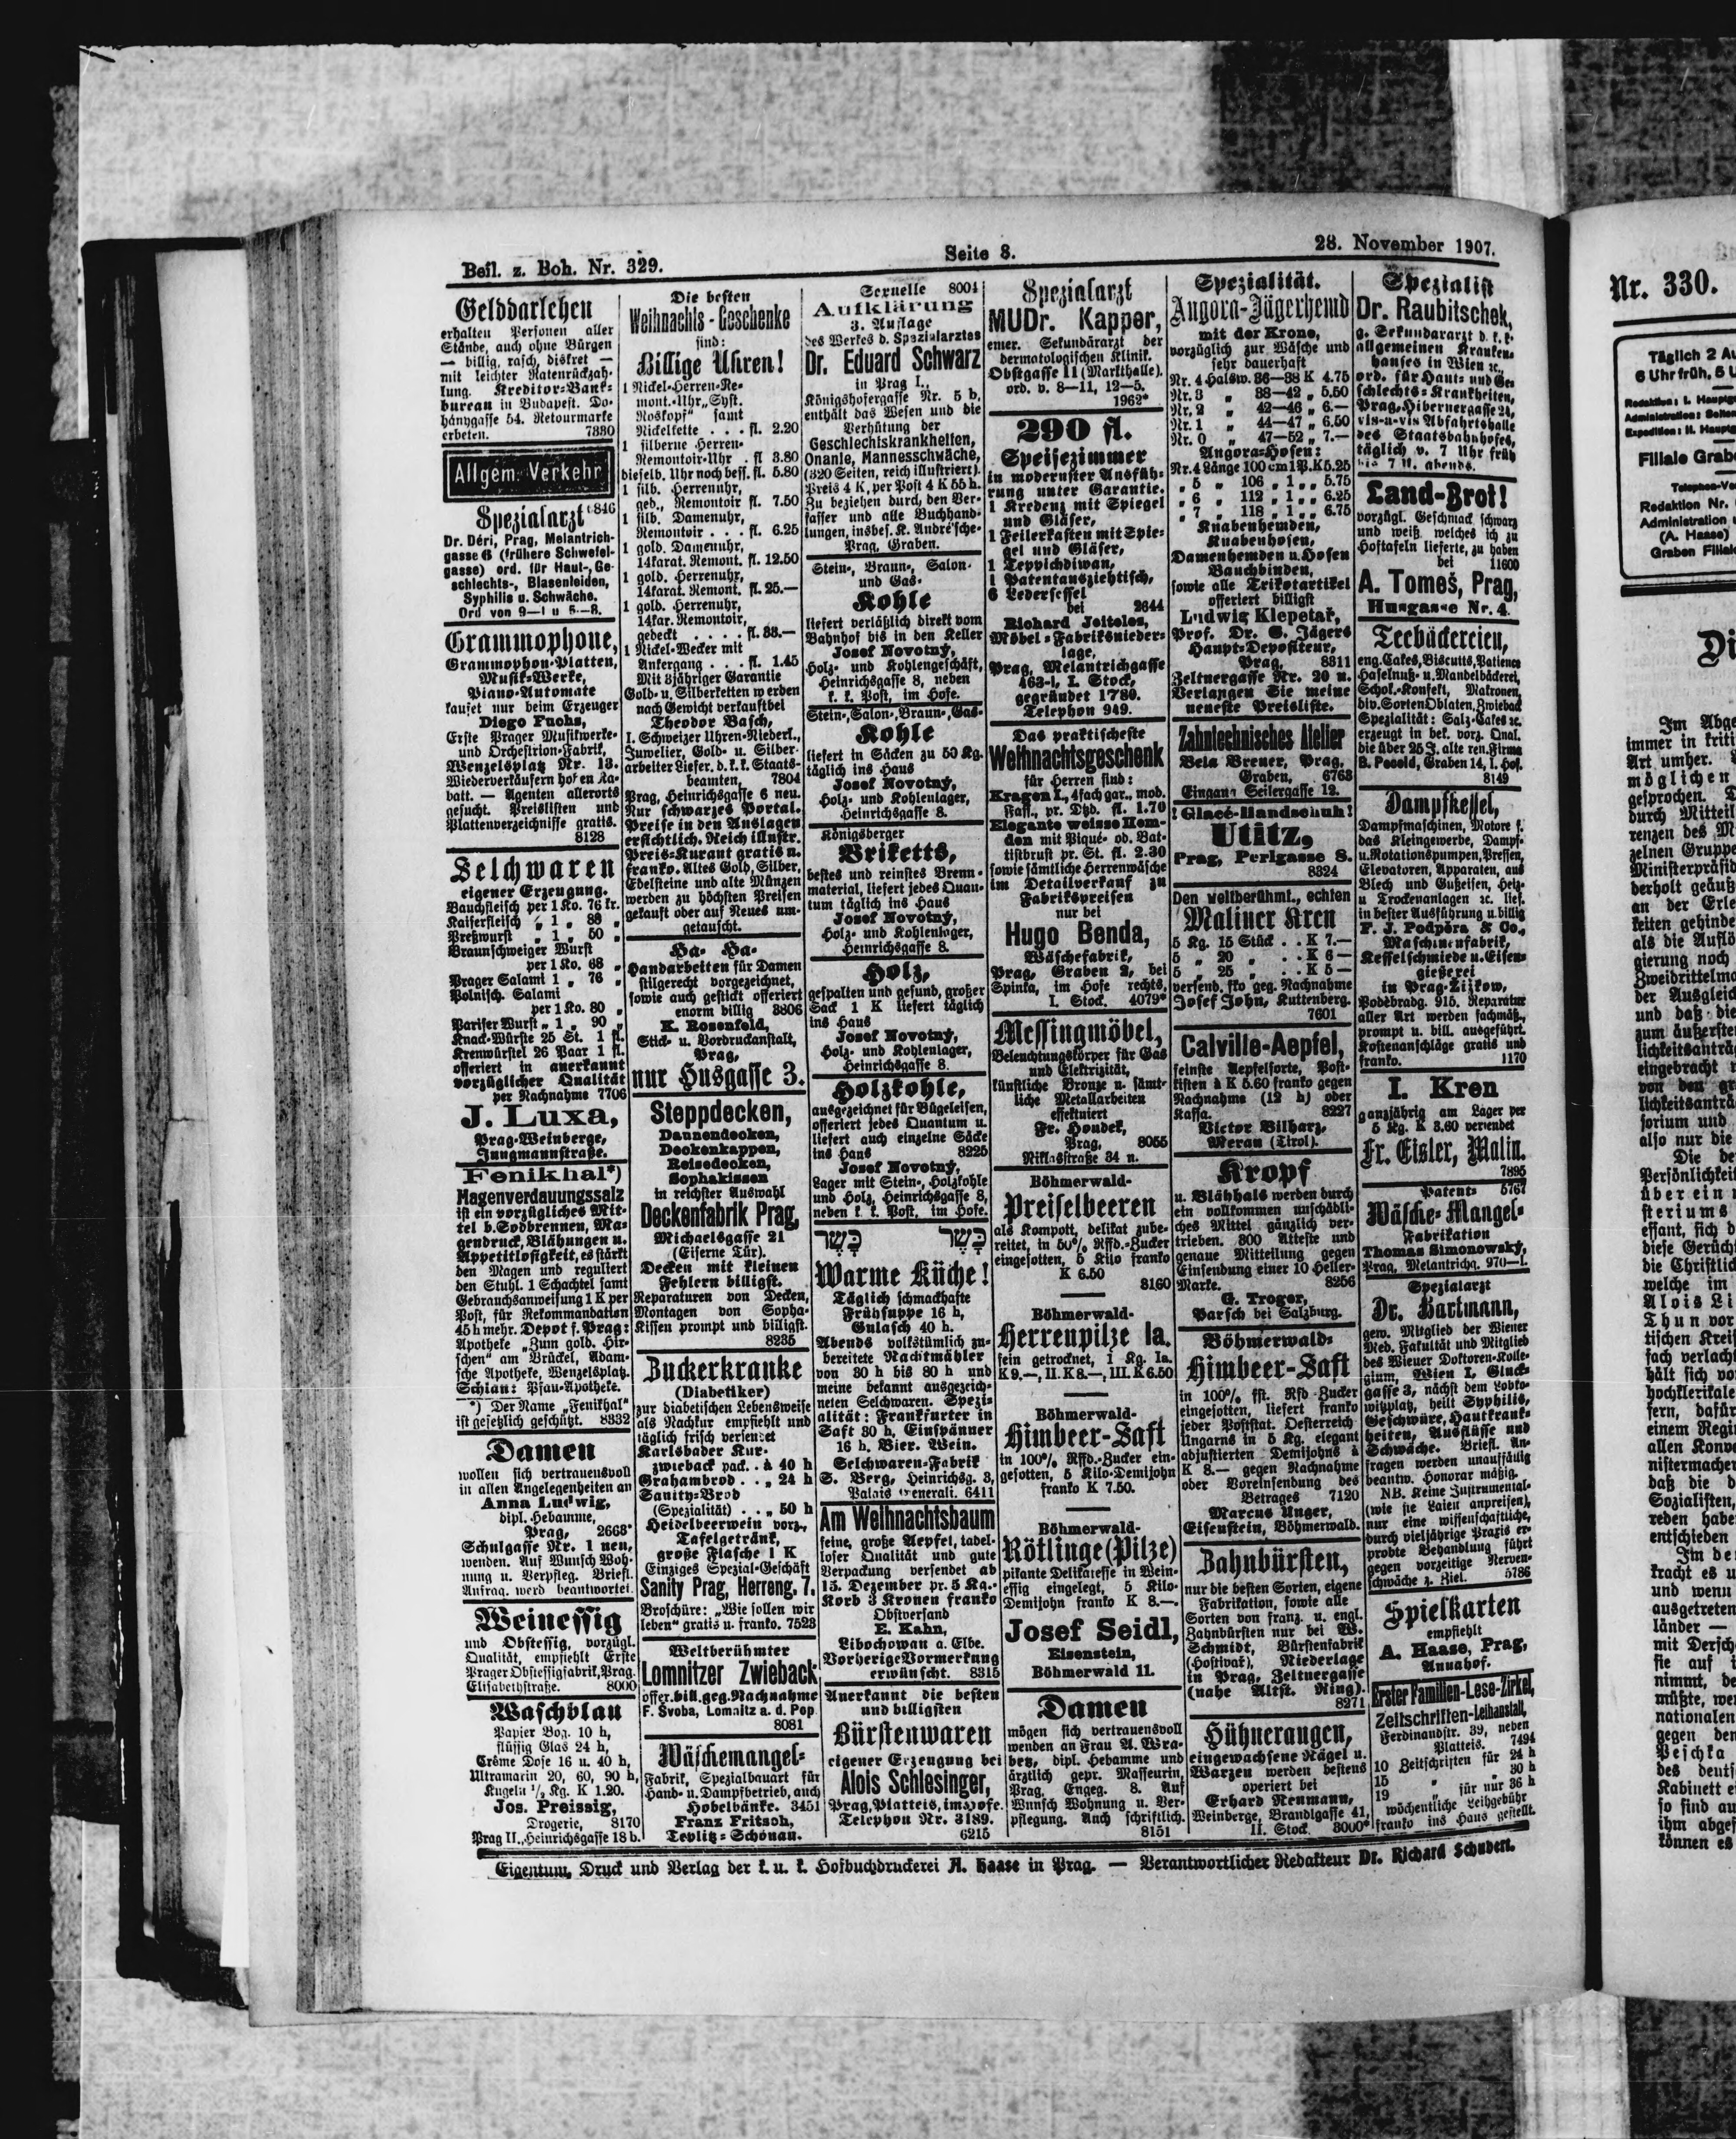 Beil. z. Boh. Nr. 329.
Seite 8.
28. November 1907.
Gelddarlehen
erhalten Personen aller
Stände, auch ohne Bürgen
— billig, rasch, diskret —
mit leichter Ratenrückzah-
lung. Kreditor-Bank-
bureau in Budapest. Do-
hánygasse 54. Retourmarke
erbeten. 7830
Allgem. Verkehr
Spezialarzt
Dr. Déri, Prag, Melantrich-
gasse 6 (frühere Schwefel-
gasse) ord. für Haut-, Ge-
schlechts-, Blasenleiden,
Syphilis u. Schwäche.
Grammophone,
Grammophon-Platten,
Musik-Werke,
Piano-Automate
kaufet nur beim Erzeuger
Diego Fuchs,
Erste Prager Musikwerke-
und Orchestrion-Fabrik,
Wenzelsplatz Nr. 13.
Wiederverkäufern hohen Ra-
batt. — Agenten allerorts
gesucht. Preislisten und
Plattenverzeichnisse gratis.
8128
Selchwaren
eigener Erzeugung.
Bauchfleisch per 1 Ko. 76 kr.
Kaiserfleisch „ 1 „ 88 „
Preßwurst „ 1 „ 50 „
Braunschweiger Wurst
per 1 Ko. 68 „
Prager Salami 1 „ 76 „
Polnisch. Salami
per 1 Ko. 80 „
Pariser Wurst „ 1 „ 90 „
Knack-Würste 25 St. 1 fl.
Krenwürstel 26 Paar 1 fl.
offeriert in anerkannt
vorzüglicher Qualität
per Nachnahme 7706
J. Luxa,
Prag-Weinberge,
Jungmannstraße.
Fenikhal*)
Magenverdauungssalz
ist ein vorzügliches Mit-
tel b. Sodbrennen, Ma-
gendruck, Blähungen u.
Appetitlosigkeit, es stärkt
den Magen und reguliert
den Stuhl. 1 Schachtel samt
Gebrauchsanweisung 1 K per
Post, für Rekommandation
45 h mehr. Depot f. Prag:
Apotheke „Zum gold. Hir-
schen“ am Brückel, Adam-
sche Apotheke, Wenzelsplatz.
Schlan: Pfau-Apotheke.
*) Der Name „Fenikhal“
ist gesetzlich geschützt. 8332
Damen
wollen sich vertrauensvoll
in allen Angelegenheiten an
Anna Ludwig,
dipl. Hebamme,
Prag, 2668*
Schulgasse Nr. 1 neu,
wenden. Auf Wunsch Woh-
nung u. Verpfleg. Briefl.
Anfrag. werd beantwortet.
Weinessig
und Obstessig, vorzügl.
Qualität, empfiehlt Erste
Prager Obstessigfabrik, Prag.
Elisabethstraße. 8000
Waschblau
Papier Bog. 10 h,
flüssig Glas 24 h,
Crême Dose 16 u. 40 h,
Ultramarin 20, 60, 90 h,
Kugeln ½ Kg. K 1.20.
Jos. Preissig,
Drogerie, 8170
Prag II., Heinrichsgasse 18 b.
Die besten
Weihnachts-Geschenke
sind:
Billige Uhren!
1 Nickel-Herren-Re-
mont.-Uhr „Syst.
Roskopf“ samt
Nickelkette . . . fl. 2.20
1 silberne Herren-
Remontoir-Uhr . fl. 3.80
dieselb. Uhr noch bess. fl. 5.80
1 silb. Herrenuhr,
ged., Remontoir fl. 7.50
1 silb. Damenuhr,
Remontoir . . . fl. 6.25
1 gold. Damenuhr,
14karat. Remont. fl. 12.50
1 gold. Herrenuhr,
14karat. Remont. fl. 25.—
1 gold. Herrenuhr,
14kar. Remontoir,
gedeckt . . . . fl. 38.—
1 Nickel-Wecker mit
Ankergang . . . fl. 1.45
Mit 3jähriger Garantie
Gold- u. Silberketten werden
nach Gewicht verkauft bei
Theodor Basch,
I. Schweizer Uhren-Niederl.,
Juwelier, Gold- u. Silber-
arbeiter Liefer. d. k. k. Staats-
beamten, 7804
Prag, Heinrichsgasse 6 neu.
Nur schwarzes Portal.
Preise in den Auslagen
ersichtlich. Reich illustr.
Preis-Kurant gratis u.
franko. Altes Gold, Silber,
Edelsteine und alte Münzen
werden zu höchsten Preisen
gekauft oder auf Neues um-
getauscht.
Ha- Ha-
Handarbeiten für Damen
stilgerecht vorgezeichnet,
sowie auch gestickt offeriert
enorm billig 8806
K. Rosenfeld,
Stick- u. Vordruckanstalt,
Prag,
nur Husgasse 3.
Steppdecken,
Daunendecken,
Deckenkappen,
Reisedecken,
Sophakissen
in reichster Auswahl
Deckenfabrik Prag,
Michaelsgasse 21
(Eiserne Tür).
Decken mit kleinen
Fehlern billigst.
Reparaturen von Decken,
Montagen von Sopha-
Kissen prompt und billigst.
8235
Zuckerkranke
(Diabetiker)
zur diabetischen Lebensweise
als Nachkur empfiehlt und
täglich frisch versendet
Karlsbader Kur-
zwieback pack. . à 40 h
Grahambrod . . „ 24 h
Sanity-Brod
(Spezialität) . . „ 50 h
Heidelbeerwein vorz.,
Tafelgetränk,
große Flasche 1 K
Einziges Spezial-Geschäft
Sanity Prag, Herreng. 7.
Broschüre: „Wie sollen wir
leben“ gratis u. franko. 7523
Weltberühmter
Lomnitzer Zwieback
offer. bill. geg. Nachnahme
F. Svoba, Lomnitz a. d. Pop.
8081
Wäschemangel-
Fabrik, Spezialbauart für
Hand- u. Dampfbetrieb, auch
Hobelbänke. 3451
Franz Fritsch,
Teplitz-Schönau.
Sexuelle 8004
Aufklärung
3. Auflage
des Werkes d. Spezialarztes
Dr. Eduard Schwarz
in Prag I.,
Königshofergasse Nr. 5 b,
enthält das Wesen und die
Verhütung der
Geschlechtskrankheiten,
Onanie, Mannesschwäche,
(320 Seiten, reich illustriert).
Preis 4 K, per Post 4 K 55 h.
Zu beziehen durch den Ver-
fasser und alle Buchhand-
lungen, insbes. K. André'sche-
Prag, Graben.
Stein-, Braun-, Salon-
und Gas-
Kohle
liefert verläßlich direkt vom
Bahnhof bis in den Keller
Josef Novotný,
Holz- und Kohlengeschäft,
Heinrichsgasse 8, neben
k. k. Post, im Hofe.
Stein-, Salon-, Braun-, Gas-
Kohle
liefert in Säcken zu 50 Kg.
täglich ins Haus
Josef Novotný,
Holz- und Kohlenlager,
Heinrichsgasse 8.
Königsberger
Briketts,
bestes und reinstes Brenn-
material, liefert jedes Quan-
tum täglich ins Haus
Josef Novotný,
Holz- und Kohlenlager,
Heinrichsgasse 8.
Holz,
gespalten und gesund, großer
Sack 1 K liefert täglich
ins Haus
Josef Novotný,
Holz- und Kohlenlager,
Heinrichsgasse 8.
Holzkohle,
ausgezeichnet für Bügeleisen,
offeriert jedes Quantum u.
liefert auch einzelne Säcke
ins Haus 8225
Josef Novotný,
Lager mit Stein-, Holzkohle
und Holz, Heinrichsgasse 8,
neben k. k. Post, im Hofe.
כָּשֵׁר כָּשֵׁר
Warme Küche!
Täglich schmackhafte
Frühsuppe 16 h,
Gulasch 40 h.
Abends volkstümlich zu-
bereitete Nachtmähler
von 30 h bis 80 h und
meine bekannt ausgezeich-
neten Selchwaren. Spezi-
alität: Frankfurter in
Saft 30 h, Einspänner
16 h, Bier. Wein.
Selchwaren-Fabrik
S. Berg, Heinrichsg. 3,
Palais Generali. 6411
Am Weihnachtsbaum
feine, große Aepfel, tadel-
loser Qualität und gute
Verpackung versendet ab
15. Dezember pr. 5 Kg.-
Korb 3 Kronen franko
Obstversand
E. Kahn,
Libochowan a. Elbe.
Vorherige Vormerkung
erwünscht. 8315
Anerkannt die besten
und billigsten
Bürstenwaren
eigener Erzeugung bei
Alois Schlesinger,
Prag, Platteis, im Hofe.
Telephon Nr. 3189.
6215
Spezialarzt
MUDr. Kapper,
emer. Sekundärarzt der
dermatologischen Klinik.
Obstgasse 11 (Markthalle).
ord. v. 8—11, 12—5.
1962*
290 fl.
Speisezimmer
in modernster Ausfüh-
rung unter Garantie.
1 Kredenz mit Spiegel
und Gläser,
1 Feilerkasten mit Spie-
gel und Gläser,
1 Teppichdiwan,
1 Patentausziehtisch,
6 Ledersessel
bei 2644
Richard Jeiteles,
Möbel-Fabriksnieder-
lage,
Prag, Melantrichgasse
463-I, I. Stock,
gegründet 1780.
Telephon 949.
Das praktischeste
Weihnachtsgeschenk
für Herren sind:
Kragen I., 4fach gar., mod.
Fass., pr. Dtzd. fl. 1.70
Elegante weisse Hem-
den mit Pique- od. Bat-
tistbrust pr. St. fl. 2.30
sowie sämtliche Herrenwäsche
im Detailverkauf zu
Fabrikspreisen
nur bei
Hugo Benda,
Wäschefabrik,
Prag, Graben 2, bei
Spinka, im Hofe rechts,
I. Stock. 4079*
Messingmöbel,
Beleuchtungskörper für Gas
und Elektrizität,
künstliche Bronze u. sämt-
liche Metallarbeiten
effektuiert
Fr. Houdek,
Prag, 8055
Niklasstraße 34 n.
Böhmerwald-
Preiselbeeren
als Kompott, delikat zube-
reitet, in 50% Rffd.-Zucker
eingesotten, 5 Kilo franko
K 6.50
8160
Böhmerwald-
Herrenpilze Ia.
fein getrocknet, 1 Kg. Ia.
K 9.—, II. K 8.—, III. K 6.50
Böhmerwald-
Himbeer-Saft
in 100% Rffd.-Zucker ein-
gesotten, 5 Kilo-Demijohn
franko K 7.50.
Böhmerwald-
Rötlinge (Pilze)
pikante Delikatesse in Wein-
essig eingelegt, 5 Kilo-
Demijohn franko K 8.—.
Josef Seidl,
Eisenstein,
Böhmerwald 11.
Damen
mögen sich vertrauensvoll
wenden an Frau A. Wra-
betz, dipl. Hebamme und
ärztlich gepr. Masseurin,
Prag, Engeg. 8. Auf
Wunsch Wohnung u. Ver-
pflegung. Auch schriftlich.
8151
Spezialität.
Angora-Jägerhemd
mit der Krone,
vorzüglich zur Wäsche und
sehr dauerhaft
Nr. 4 Halsw. 36—38 K 4.75
Nr. 3 „ 38—42 „ 5.50
Nr. 2 „ 42—46 „ 6.—
Nr. 1 „ 44—47 „ 6.50
Nr. 0 „ 47—52 „ 7.—
Angora-Hosen:
Nr. 4 Länge 100 cm 1 P. K 5.25
„ 5 „ 106 „ 1 „ „ 5.75
„ 6 „ 112 „ 1 „ „ 6.25
„ 7 „ 118 „ 1 „ „ 6.75
Knabenhemden,
Knabenhosen,
Damenhemden u. Hosen
Bauchbinden,
sowie alle Trikotartikel
offeriert billigst
Ludwig Klepetař,
Prof. Dr. G. Jägers
Haupt-Depositeur,
Prag, 8311
Zeltnergasse Nr. 20 n.
Verlangen Sie meine
neueste Preisliste.
Zahntechnisches Atelier
Bela Breuer, Prag,
Graben, 6763
Eingang Seilergasse 12.
!Glacé-Handschuh!
Utitz,
Prag, Perlgasse 8.
8324
Den weltberühmt., echten
Maliner Kren
5 Kg. 15 Stück . . K 7.—
5 „ 20 „ . . K 6—
5 „ 25 „ . . K 5—
versend. fko geg. Nachnahme
Josef John, Kuttenberg.
7601
Calville-Aepfel,
feinste Aepfelsorte, Post-
kisten à K 5.60 franko gegen
Nachnahme (12 h) oder
Kassa. 8227
Victor Vilharz,
Meran (Tirol).
Kropf
u. Blähhals werden durch
ein vollkommen unschädli-
ches Mittel gänzlich ver-
trieben. 300 Atteste und
genaue Mitteilung gegen
Einsendung einer 10 Heller-
Marke. 8256
G. Troger,
Parsch bei Salzburg.
Böhmerwald-
Himbeer-Saft
in 100% fst. Rfd-Zucker
eingesotten, liefert franko
jeder Poststat. Oesterreich
Ungarns in 5 Kg. elegant
adjustierten Demijohns à
K 8.— gegen Nachnahme
oder Voreinsendung des
Betrages 7120
Marcus Unger,
Eisenstein, Böhmerwald.
Zahnbürsten,
nur die besten Sorten, eigene
Fabrikation, sowie alle
Sorten von franz. u. engl.
Zahnbürsten nur bei W.
Schmidt, Bürstenfabrik
(Hostivař), Niederlage
in Prag, Zeltnergasse
(nahe Altst. Ring).
8271
Hühneraugen,
eingewachsene Nägel u.
Warzen werden bestens
operiert bei
Erhard Neumann,
Weinberge, Brandlgasse 41,
II. Stock. 3000*
Spezialist
Dr. Raubitschek,
g. Sekundararzt d. k. k.
allgemeinen Kranken-
hauses in Wien ꝛc.
ord. für Haut- und Ge-
schlechts-Krankheiten,
Prag, Hibernergasse 24,
vis-a-vis Abfahrtshalle
des Staatsbahnhofes,
täglich v. 7 Uhr früh
bis 7 U. abends.
Land-Brot!
vorzügl. Geschmack schwarz
und weiß welches ich zu
Hoftafeln lieferte, zu haben
bei 11600
A. Tomeš, Prag,
Husgasse Nr. 4.
Teebäckereien,
eng. Cakes, Biscuits, Patience
Haselnuß- u. Mandelbäckerei,
Schok.-Konfekt, Makronen,
div. Sorten Oblaten, Zwieback
Spezialität: Salz-Cakes ꝛc.
erzeugt in bek. vorz. Qual.
die über 25 J. alte ren. Firma
B. Pecold, Graben 14, I. Hof.
8149
Dampfkessel,
Dampfmaschinen, Motore f.
das Kleingewerbe, Dampf-
u. Rotationspumpen, Pressen,
Elevatoren, Apparaten, aus
Blech und Gußeisen, Heiz-
u Trockenanlagen ꝛc. lief.
in bester Ausführung u. billig
F. J. Podpěra & Co.,
Maschinenfabrik,
Kesselschmiede u. Eisen-
gießerei
in Prag-Žižkow,
Poděbradg. 915. Reparatur
aller Art werden fachmäß.,
prompt u. bill. ausgeführt.
Kostenanschläge gratis und
franko. 1170
I. Kren
ganzjährig am Lager per
5 Kg. K 3.60 versendet
Fr. Eisler, Malin.
7895
Patent- 5767
Wäsche-Mangel-
Fabrikation
Thomas Simonowský,
Prag, Melantrichg. 970—I.
Spezialarzt
Dr. Hartmann,
gew. Mitglied der Wiener
Med. Fakultät und Mitglied
des Wiener Doktoren-Kolle-
gium, Wien I, Gluck-
gasse 3, nächst dem Lobko-
witzplatz, heilt Syphilis,
Geschwüre, Hautkrank-
heiten, Ausflüsse und
Schwäche. Briefl. An-
fragen werden unauffällig
beantw. Honorar mäßig.
NB. Keine Instrumental-
(wie sie Laien anpreisen),
nur eine wissenschaftliche,
durch vieljährige Praxis er-
probte Behandlung führt
gegen vorzeitige Nerven-
schwäche z. Ziel. 5786
Spielkarten
empfiehlt
A. Haase, Prag,
Annahof.
Erster Familien-Lese-Zirkel,
Zeitschriften-Leihanstalt,
Ferdinandstr. 39, neben
Platteis. 7494
10 Zeitschriften für 24 h
15 „ „ 30 h
19 „ für nur 36 h
wöchentliche Leihgebühr
franko ins Haus gestellt.
Eigentum, Druck und Verlag der k. u. k. Hofbuchdruckerei A. Haase in Prag. — Verantwortlicher Redakteur Dr. Richard Schubert.
Nr. 330.
Täglich 2 Au
6 Uhr früh, 5 U
Redaktion: I. Hauptg
Filiale Grabe
Redaktion Nr.
Administration
(A. Haase)
Graben Filiale
Di
Im Abge
immer in kriti
Art umher.
möglichen
gesprochen.
durch Mitteil
renzen des M
zelnen Gruppe
Ministerpräsid
derholt geäuß
an der Erle
keiten gehinde
als die Auflö
gierung noch
Zweidrittelma
der Ausgleich
und daß die
zum äußerste
lichkeitsanträ
eingebracht
von den
lichkeitsanträ
sorium und
also nur die
Die be
Persönlichkeit
überein
steriums
essant, sich d
diese Gerücht
die Christlich
welche im
Alois Li
Thun vor
tischen Kreis
fach verlacht
hält sich vo
hochklerikale
fern, dafür
einem Regi
allen Konve
nistermacher
daß die d
Sozialisten,
reden habe
entschieden
Im de
kracht es u
und wenn
ausgetreten
länder —
mit Dersch
sie auf i
nimmt, be
müßte, wen
nationalen
gegen den
Peschka
des deuts
Kabinett e
so sind au
ihm abges
können es